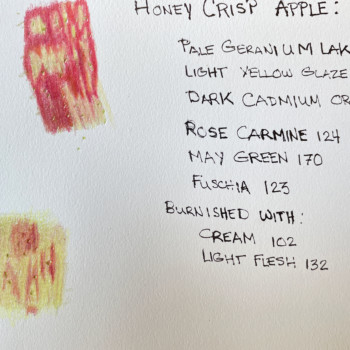 HONEY CRISP APPLE:
PALE GERANIUM LAK
LIGHT YELLOW GLAZE
DARK CADMIUM OR
ROSE CARMINE 124
MAY GREEN 170
FUSCHIA 123
BURNISHED WITH:
CREAM 102
LIGHT FLESH 132